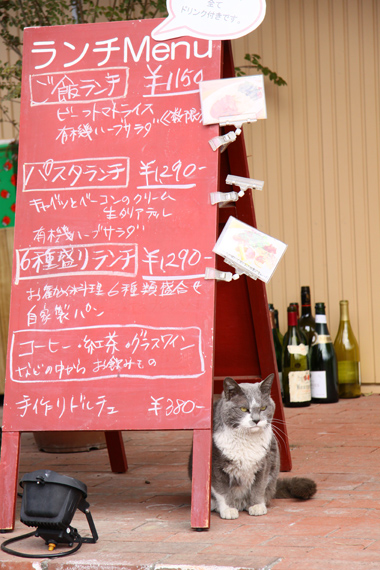 全て
ドリンク付きです。
ランチMenu
ご飯ランチ ¥1150
ビーフトマトライス
有機ハーブサラダ
パスタランチ ¥1290-
キャベツとベーコンのクリーム
有機ハーブサラダ
6種盛りランチ ¥1290-
6種類盛合せ
自家製パン
コーヒー・紅茶・グラスワイン
お飲みもの
手作りドルチェ ¥380-